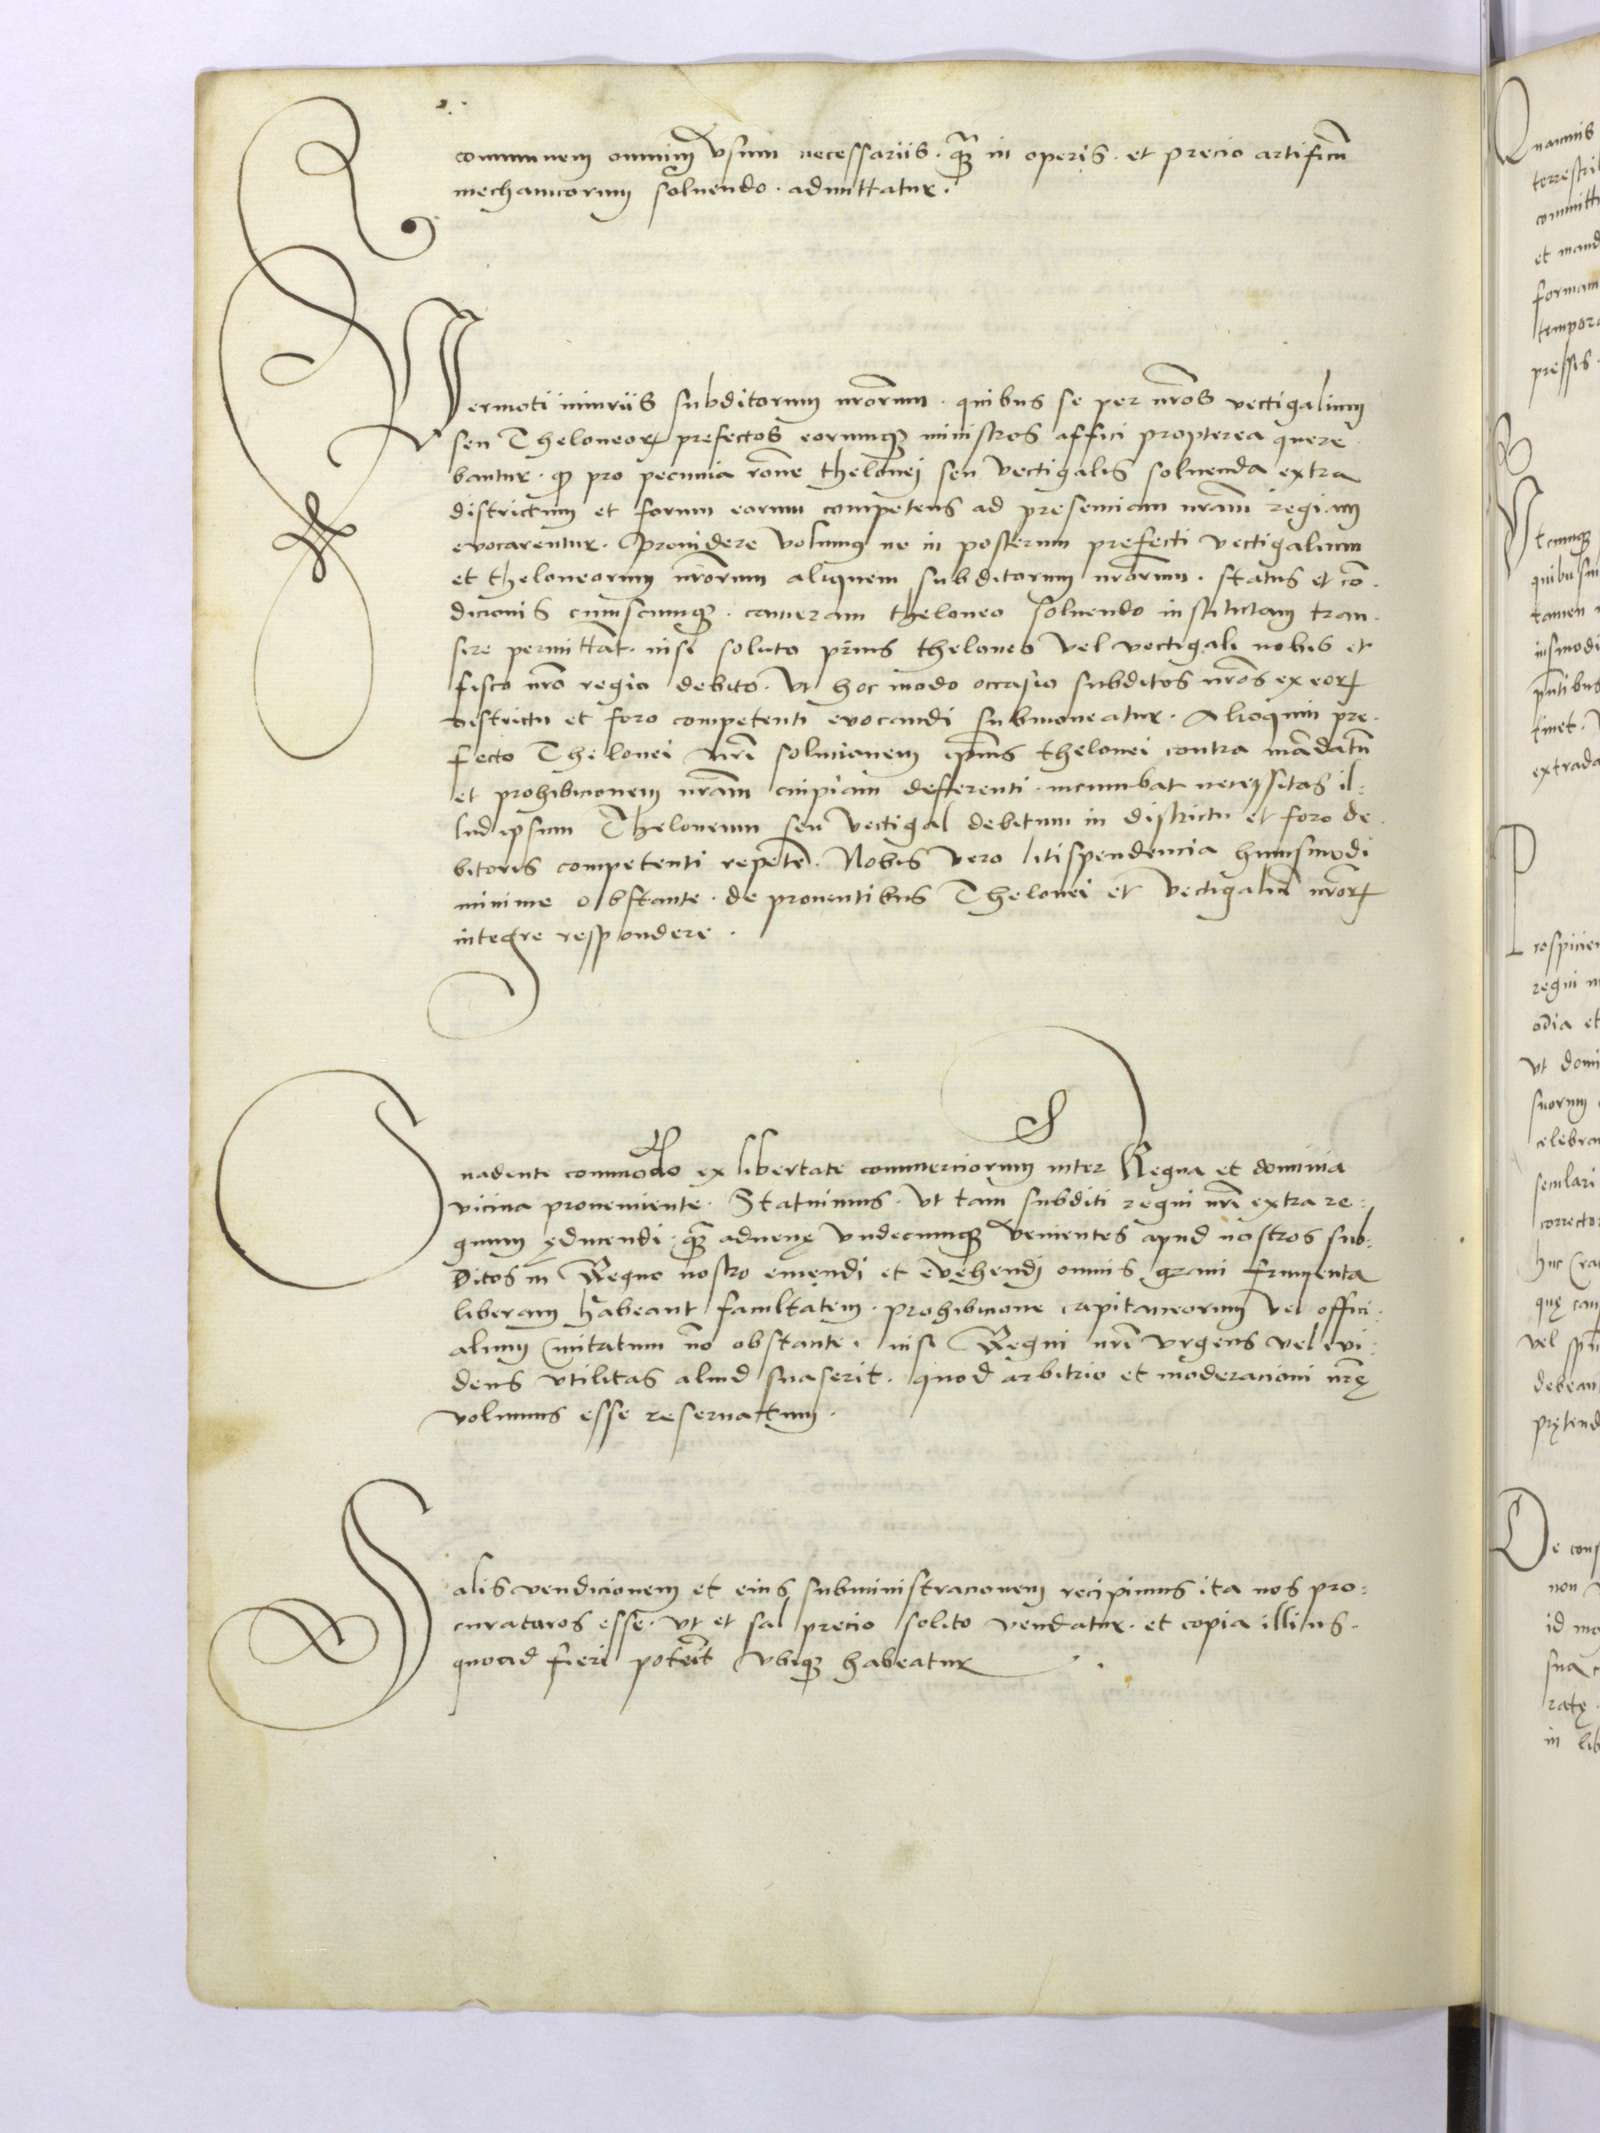 communem omnium vsum necessariis · q̃ꝫ in operis · et precio artificũ
mechanicorum soluendo · admittatur ·
Permoti iniuriis subditorum nr̃orum · quibus se per nr̃os vectigalium
seu Theloneoꝝ prefectos eorumqꝫ ministros affici propterea quere
bantur · ꝙ pro pecunia rõne thelonei seu vectigalis soluenda extra
districtum et forum eorum competens ad presenciam nr̃am regiam
evocarentur · Prouidere volumꝯ ne in posterum prefecti vectigalium
et theloneorum nr̃orum aliquem subditorum nr̃orum · status et cõ-
dicionis cuiuscumqꝫ · cameram theloneo soluendo institutam tran-
sire permittãt · nisi soluto prius theloneo vel vectigali nobis et
fisco nr̃o regio debito · vt hoc modo occasio subditos nr̃os ex eoꝝ
districtu et foro competenti evocandi submoneatur · Alioquin pre-
fecto Thelonei nr̃i solucionem ip̃ius thelonei contra mãdatũ
et prohibicionem nr̃am cuipiam defferenti · incumbat necessitas il-
lud ipsum Theloneum seu vectigal debitum in districtu et foro de-
bitoris competenti repetẽ · Nobis vero litispendencia huiusmodi
minime obstante · de prouentibus Thelonei et vectigaliũ nr̃oꝝ
integre respondere ·
Suadente commodo ex libertate commerciorum inter Regna et dominia
vicina proueniente · Statuimus · vt tam subditi regni nr̃i extra re-
gnum educendi · q̃ꝫ aduenę vndecumqꝫ venientes apud nostros sub-
ditos in Regno nostro emendi et evehendi omnis grani frumenta
liberam habeant facultatem · prohibicione capitaneorum vel offici-
alium ciuitatum nõ obstante · nisi Regni nr̃i vrgens vel evi-
dens vtilitas aliud suaserit · quod arbitrio et moderacioni nr̃ę
volumus esse reseruatum ·
Salis vendicionem et eius subministracionem recipimus ita nos pro-
curaturos esse · vt et sal precio solito vendatur · et copia illius
quoad fieri poterit vbiqꝫ habeatur ·